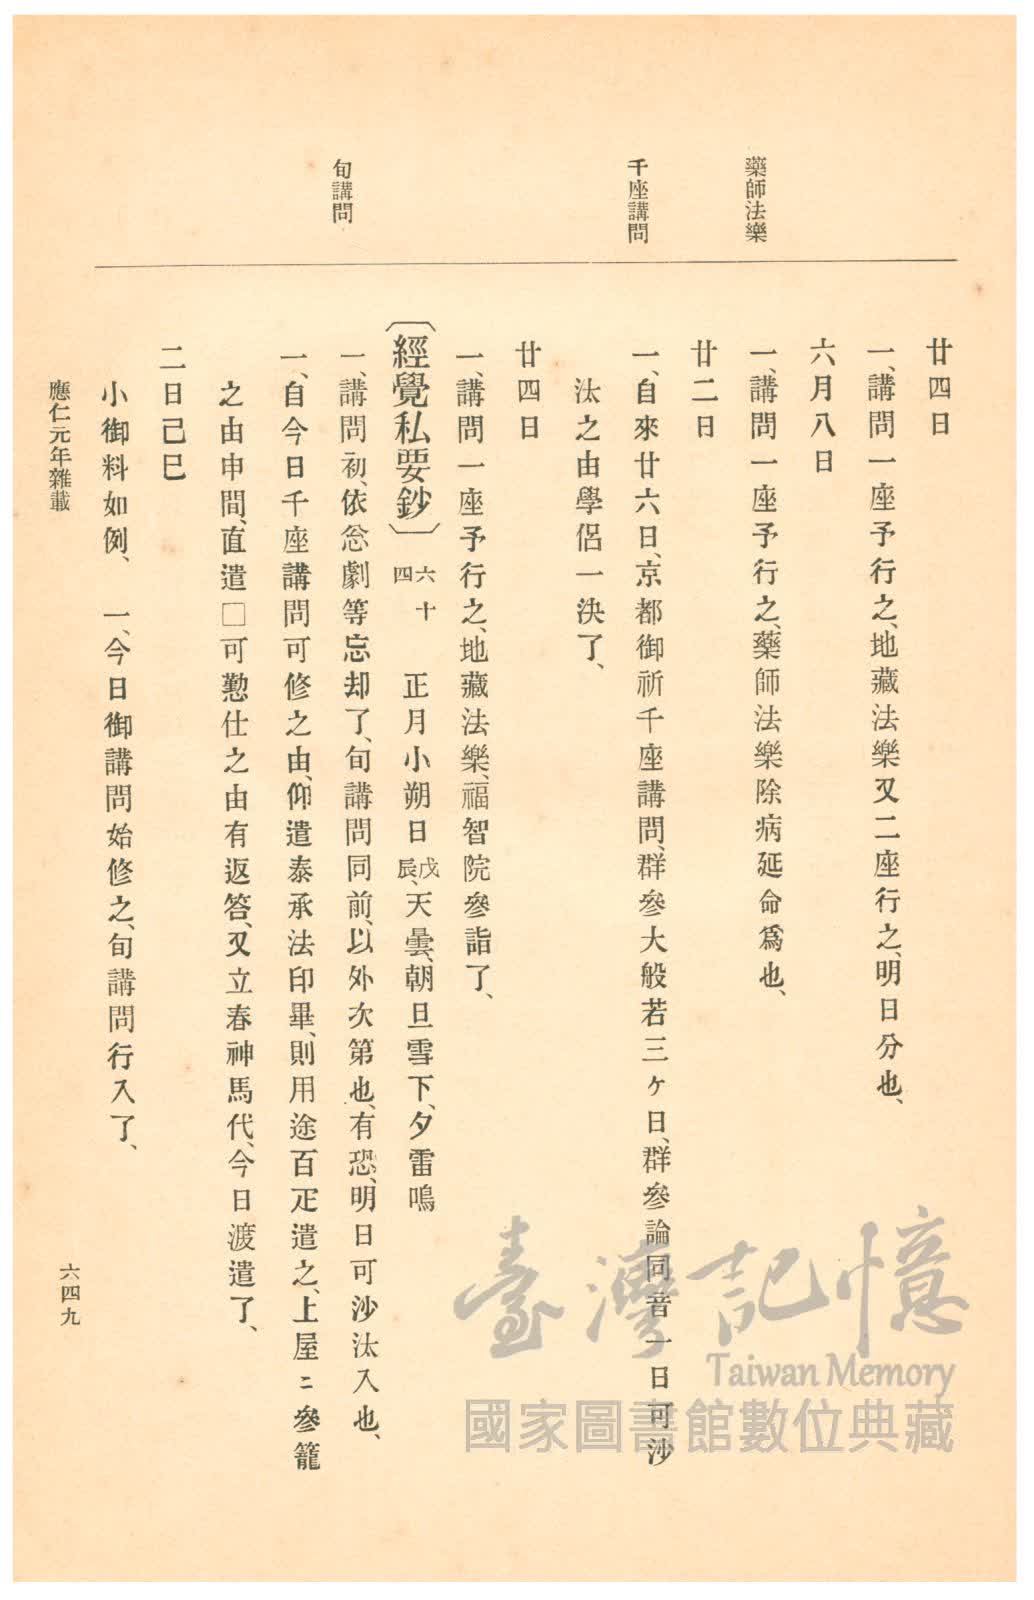 藥師法樂
千座講問
旬講問
廿四日
一、講問一座予行之、地藏法樂又二座行之、明日分也、
六月八日
一、講問一座予行之、藥師法樂除病延命爲也、
廿二日
一、自來廿六日、京都御祈千座講問、群參大般若三ケ日、群參論同音一日可沙
汰之由學侶一決了、
廿四日
一、講問一座予行之、地藏法樂、福智院參詣了、
〔經覺私要鈔〕 六十四 正月小朔日戊辰、天曇、朝旦雪下、夕雷鳴
一、講問初、依忩劇等忘却了、旬講問同前、以外次第也、有恐、明日可沙汰入也、
一、自今日千座講問可修之由、仰遣泰承法印畢、則用途百疋遣之、上屋ニ參籠
之由申間、直遣□可懃仕之由有返答、又立春神馬代、今日渡遣了、
二日己巳
小御料如例、 一、今日御講問始修之、旬講問行入了、
應仁元年雜載
六四九
臺灣記憶
Taiwan Memory
國家圖書館數位典藏